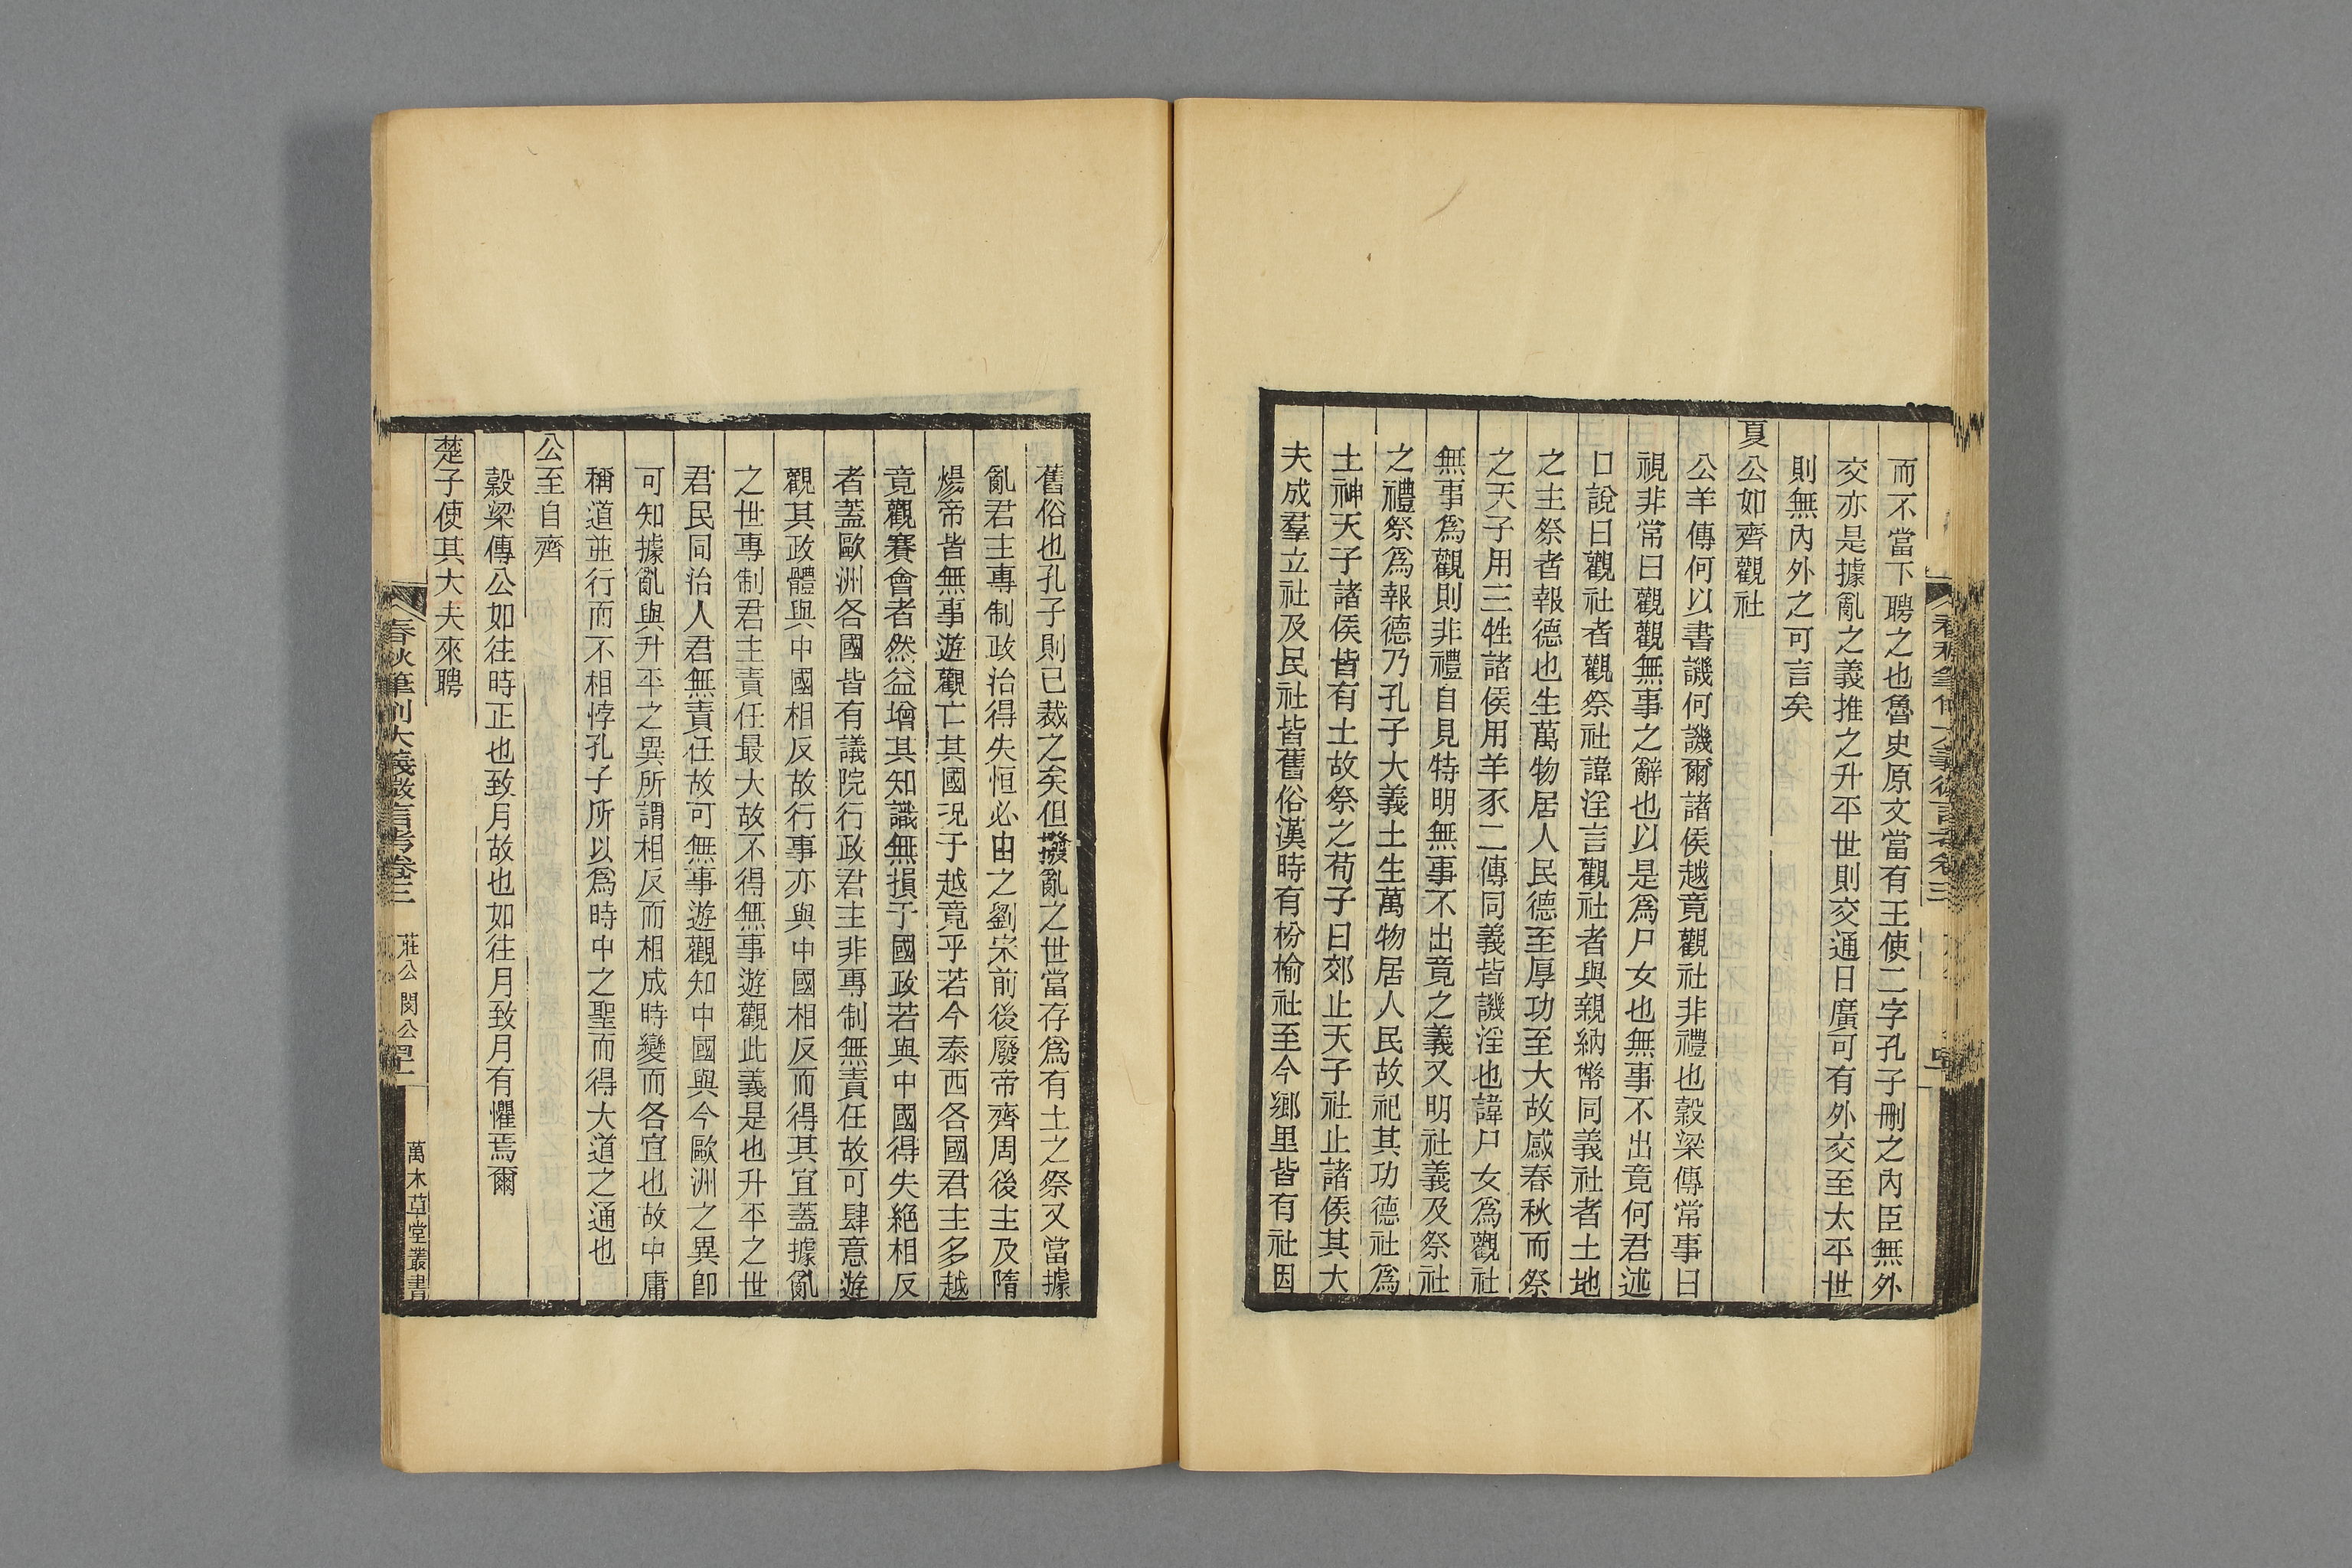 而不當下聘之也魯史原文當有王使二字孔子刪之內臣無外
交亦是據亂之義推之升平世則交通日廣可有外交至太平世
則無內外之可言矣
夏公如齊觀社
公羊傳何以書譏何譏爾諸侯越竟觀社非禮也穀梁傳常事曰
視非常曰觀觀無事之辭也以是爲尸女也無事不出竟何君述
口說曰觀社者觀祭社諱淫言觀社者與親納幣同義社者土地
之主祭者報德也生萬物居人民德至厚功至大故感春秋而祭
之天子用三牲諸侯用羊豕二傳同義皆譏淫也諱尸女爲觀社
無事爲觀則非禮自見特明無事不出竟之義又明社義及祭社
之禮祭爲報德乃孔子大義土生萬物居人民故祀其功德社爲
土神天子諸侯皆有土故祭之荀子曰郊止天子社止諸侯其大
夫成羣立社及民社皆舊俗漢時有枌榆社至今鄉里皆有社因
舊俗也孔子則已裁之矣但撥亂之世當存爲有土之祭又當據
亂君主專制政治得失恒必由之劉宋前後廢帝齊周後主及隋
煬帝皆無事遊觀亡其國况于越竟乎若今泰西各國君主多越
竟觀賽會者然益增其知識無損于國政若與中國得失絶相反
者蓋歐洲各國皆有議院行政君主非專制無責任故可肆意遊
觀其政體與中國相反故行事亦與中國相反而得其宜蓋據亂
之世專制君主責任最大故不得無事遊觀此義是也升平之世
君民同治人君無責任故可無事遊觀知中國與今歐洲之異卽
可知據亂與升平之異所謂相反而相成時變而各宜也故中庸
稱道並行而不相悖孔子所以爲時中之聖而得大道之通也
公至自齊
穀梁傳公如往時正也致月故也如往月致月有懼焉爾
楚子使其大夫來聘
春秋筆削大義微言考卷三 莊公 閔公
萬木草堂叢書